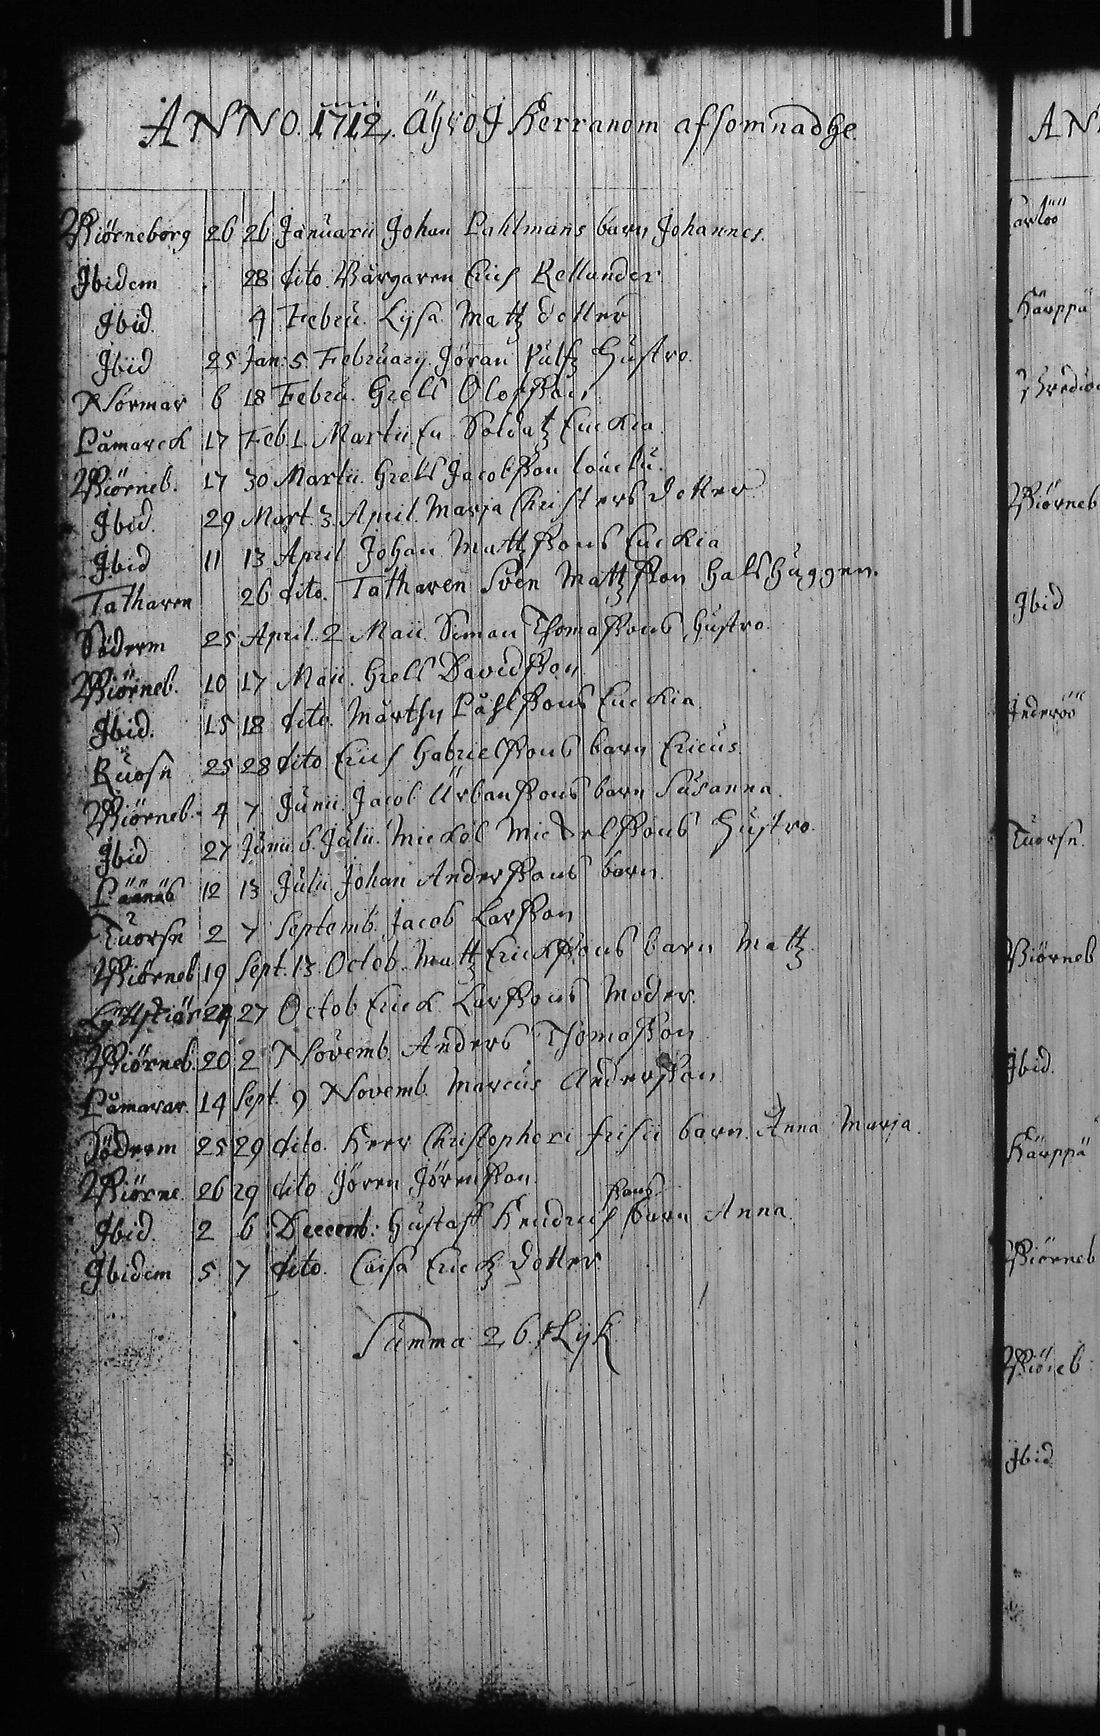 ANNO. 1712, ähro J Herranom afsomnadhe
Biörneborg 26 26 Januarii Johan Lahlmans barn Johannes.
Ibidem 28 dito Borgaren Erich Rellander
Ibid. 4 Febru. Lysa Mattz dotter
Ibid 25 Jan: 5. February. Jöran Pulfz Hustro
Normar 6 18 Febru. Grels Olofsson
Låmarck 17 Feb. 1. Martii En Soldatz Enckia
Biörneb. 17 30 Martii. Grels Jacobsson
Ibid. 29 Mart. 3. April. Marja Christers dotter
Ibid 11 13 April Johan Mattzsons Enckia
Tatharen 26 dito. Tatharen Sven Mattzson halshuggen.
Söderm 25 April. 2 Maii. Siman Thomassons Hustro.
Biörneb. 10 17 Maii. Grels Davidsson
Ibid. 15 18 dito. Marthn Påhlsons Enckia
Ruosn 25 28 dito Erich Gabrielssons barn Ericus.
Biörneb. 4 7 Junii. Jacob Urbanssons barn Susanna.
Ibid 27 Junii 6. Julii. Mickel Mickelssons Hustro.
12 13 Julii Johan Anderssons barn.
Tuorsn 2 7 Septemb. Jacob Larsson
Biörneb 19 Sept. 13. Octob. Mattz Erickssons barn Mattz
24 27 Octob Erick Larssons Moder.
Biörneb. 20 2 Novemb. Anders Thomasson
Låmarar. 14 Sept. 9 Novemb. Marcus Andersson
Söderm 25 29 dito. Herr Christophori Frisii barn. Anna Marja.
Biörne. 26 29 dito Jören Jörensson.
Ibid. 2 6 Decemb: Gustaff Hendrich sons barn Anna.
Ibidem 5 7 dito. Caisa Erickz dotter
Summa 26. Lyk
AN
Kärppä
Biörneb
Ibid
Inderöö
Tuorsn.
Biörneb
Ibid.
Kärppä
Biörneb
Biöreb
Ibid